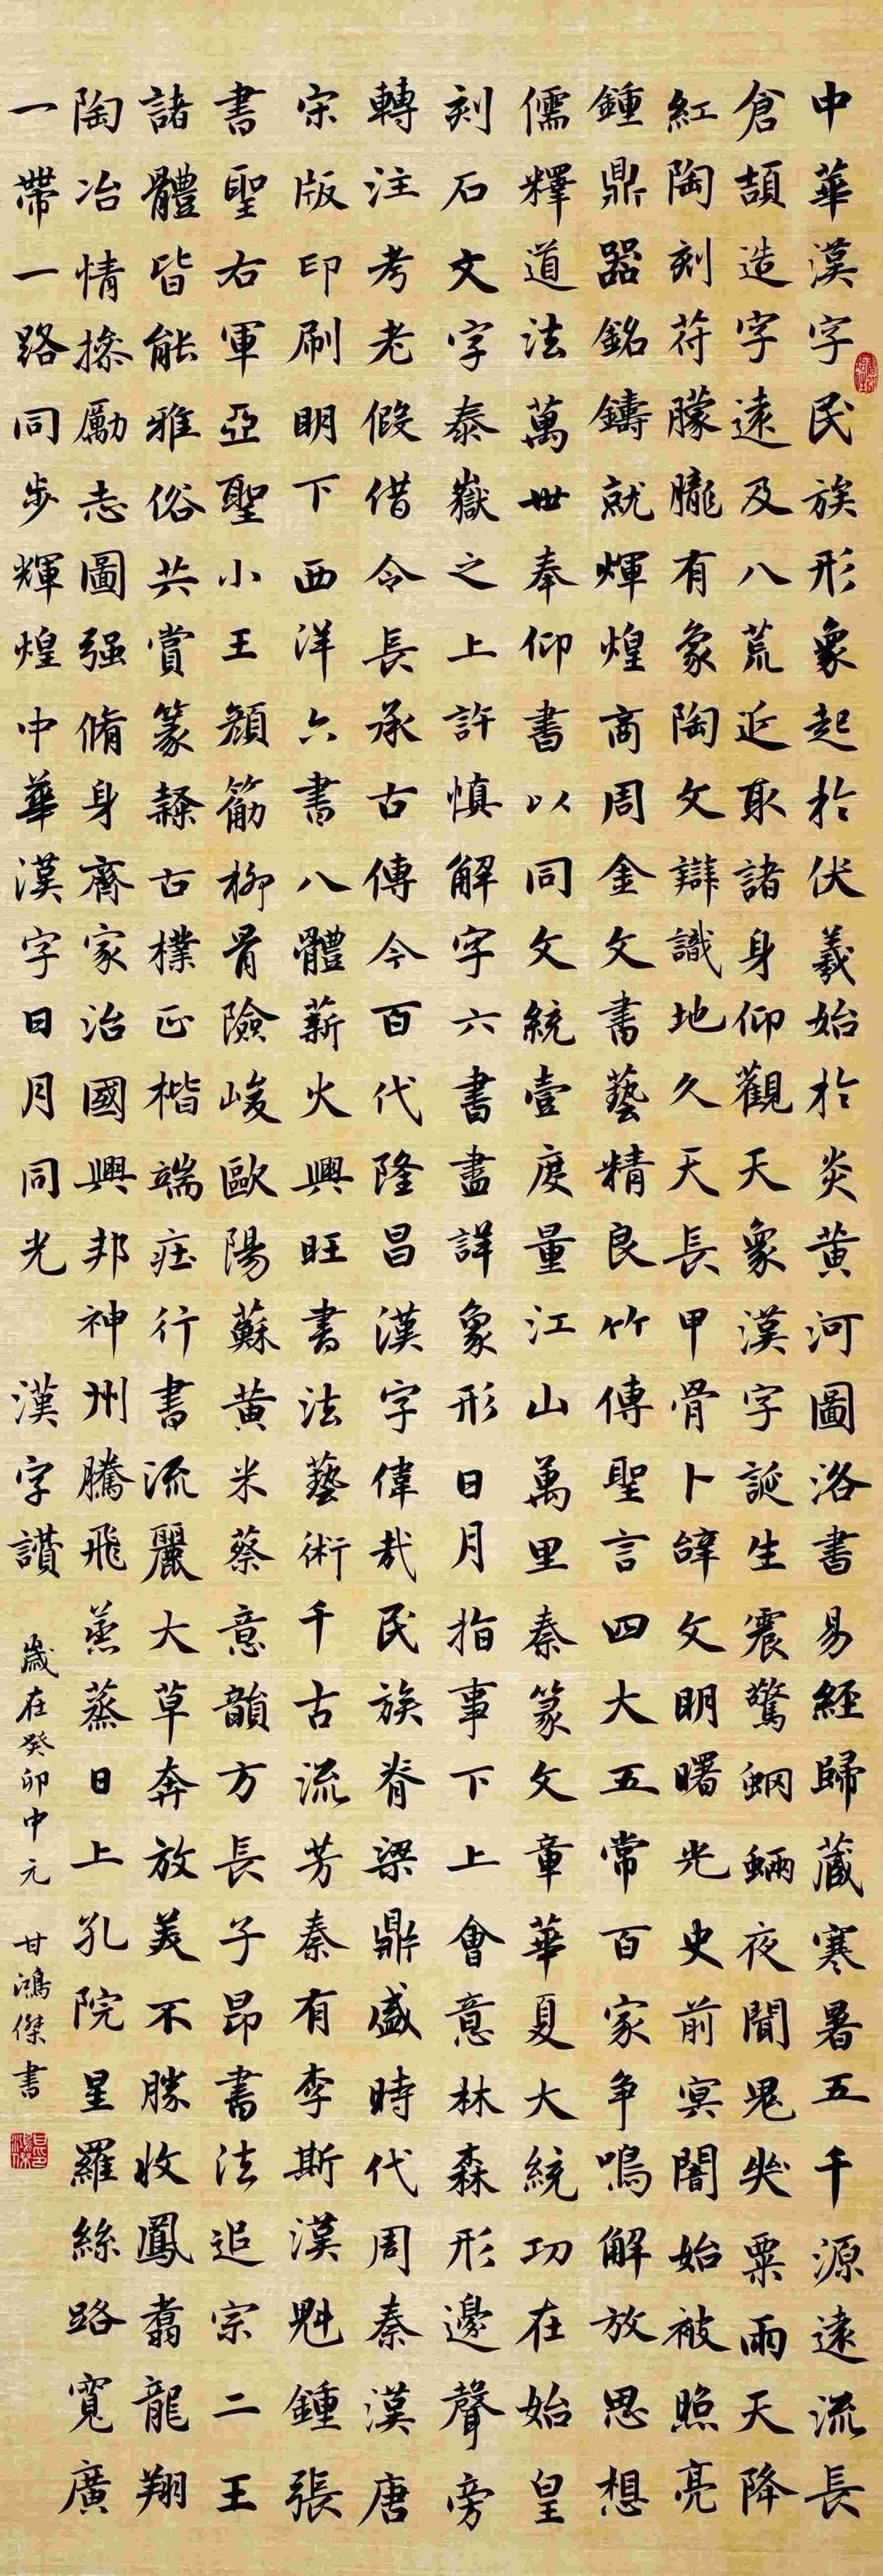 中華漢字民族形象起於伏羲始於炎黄河圖洛書易經歸藏寒暑五千源遠流長
倉頡造字遠及八荒近取諸身仰觀天象漢字誕生震驚蜩蛃夜聞鬼哭粟雨天降
紅陶刻符朦朧有象陶文辯識地久天長甲骨卜辭文明曙光史前冥闇始被照亮
鍾鼎器銘鑄就煇煌商周金文書藝精良竹傳聖言四大五常百家争鳴解放思想
儒釋道法萬世奉仰書以同文統壹度量江山萬里秦篆文章華夏大統功在始皇
刻石文字泰嶽之上許慎解字六書盡詳象形日月指事下上會意林森形邊聲旁
轉注考老假借令長承古傳今百代隆昌漢字偉哉民族脊梁鼎盛時代周秦漢唐
宋版印刷明下西洋六書八體薪火興旺書法藝術千古流芳秦有李斯漢魁鍾張
書聖右軍亞聖小王顏筋柳骨險峻歐陽蘇黄米蔡意韻方長子昂書法追宗二王
諸體皆能雅俗共賞篆隸古樸正楷端莊行書流麗大草奔放美不勝收鳳翥龍翔
陶冶情操勵志圖强脩身齊家治國興邦神州騰飛蒸蒸日上孔院星羅絲路寬廣
一帶一路同步輝煌中華漢字日月同光 漢字讚 歲在癸卯中元 甘鴻傑書